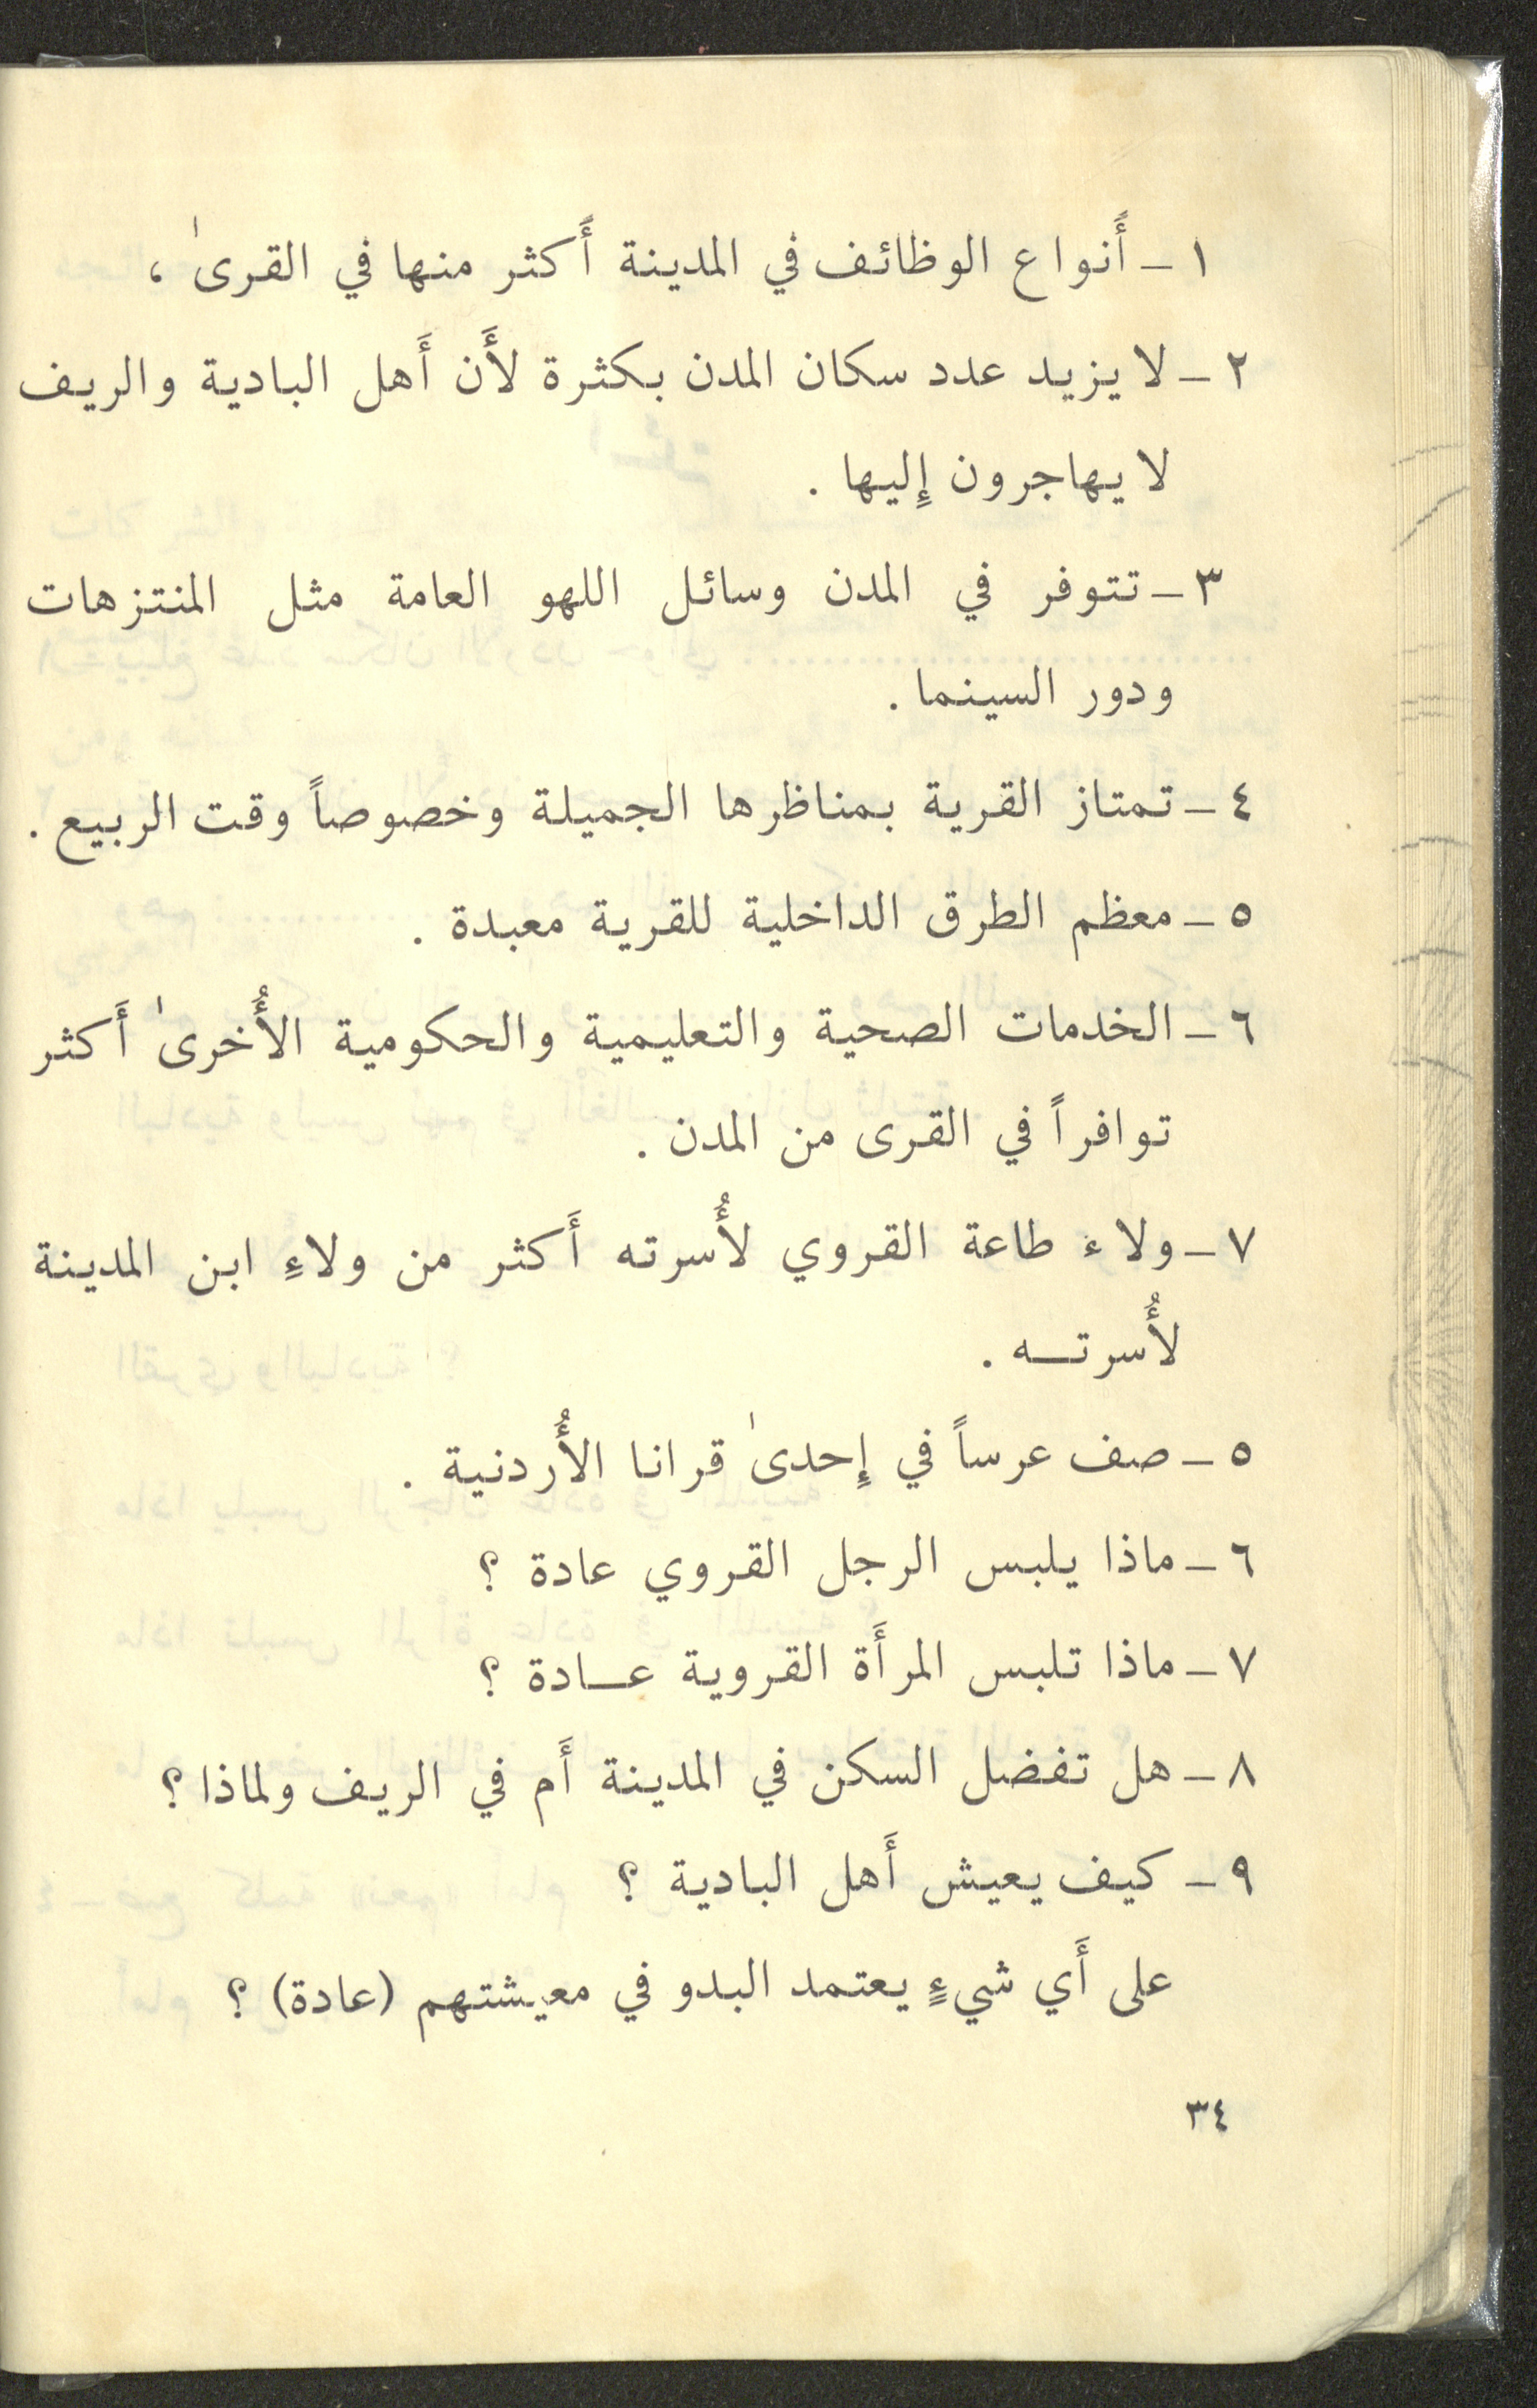 ١ - أَنواع الوظائف في المدينة أَكثر منها في القرىٰ ،
٢ - لا يزيد عدد سكان المدن بكثرة لأَن أَهل البادية والريف
لا يهاجرون إِليها .
٣ - تتوفر في المدن وسائل اللهو العامة مثل المنتزهات
ودور السينما .
٤ - تمتاز القرية بمناظرها الجميلة وخصوصاً وقت الربيع .
٥ - معظم الطرق الداخلية للقرية معبدة .
٦ - الخدمات الصحية والتعليمية والحكومية الأُخرىٰ أَكثر
توافراً في القرى من المدن .
٧ - ولاء طاعة القروي لأُسرته أَكثر من ولاءِ ابن المدينة
لأُسرتــه .
٥ - صف عرساً في إِحدىٰ قرانا الأُردنية .
٦ - ماذا يلبس الرجل القروي عادة ؟
٧ - ماذا تلبس المرأَة القروية عــادة ؟
٨ - هل تفضل السكن في المدينة أَم في الريف ولماذا ؟
٩ - كيف يعيش أَهل البادية ؟
على أَي شيءٍ يعتمد البدو في معيشتهم (عادة) ؟
٣٤